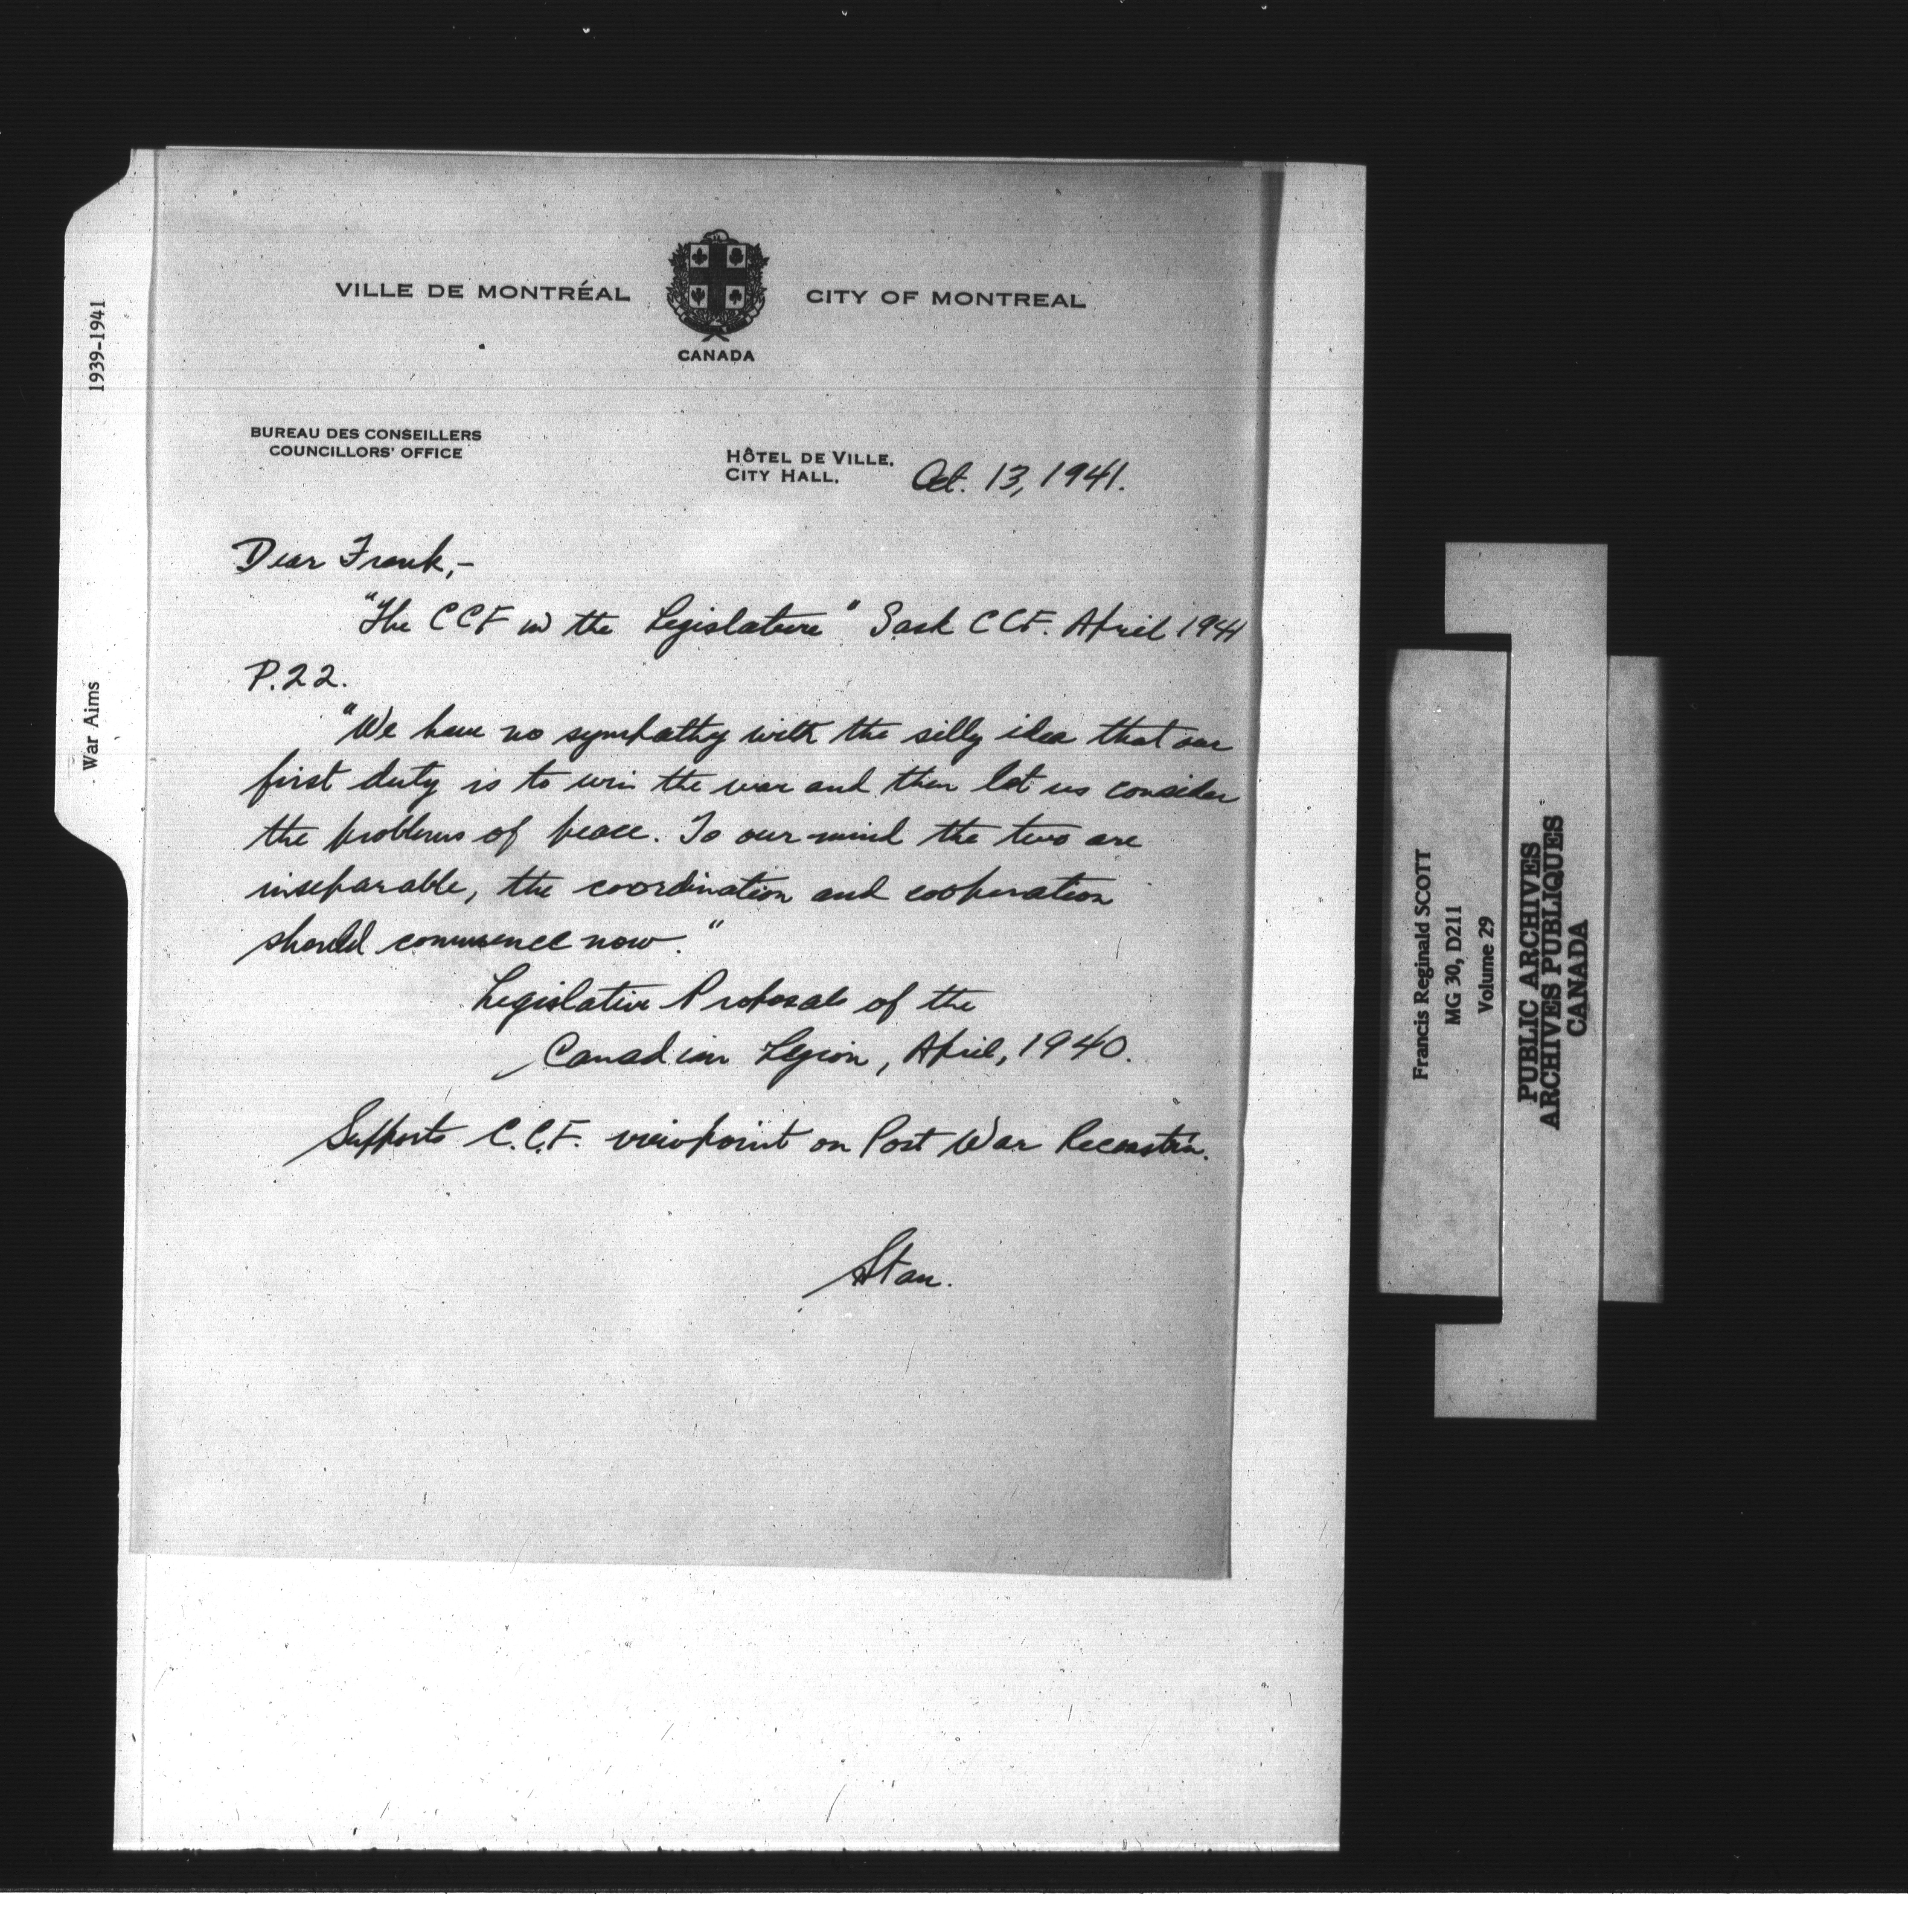 VILLE DE MONTRÉAL
CITY OF MONTREAL
CANADA
BUREAU DES CONSEILLERS
COUNCILLORS' OFFICE
HÔTEL DE VILLE,
CITY HALL,
Oct. 13, 1941.
Dear Frank,-
"The CCF in the Legislature" Sask CCF. April 1941
P.22.
"We have no sympathy with the silly idea that our
first duty is to win the war and then let us consider
the problems of peace. To our mind the two are
inseparable, the coordination and cooperation
should commence now."
Legislative Proposals of the
Canadian Legion, April, 1940.
Supports C.C.F. viewpoint on Post War Reconstn.
Stan.
1939-1941
War Aims
Francis Reginald SCOTT
MG 30, D211
Volume 29
PUBLIC ARCHIVES
ARCHIVES PUBLIQUES
CANADA